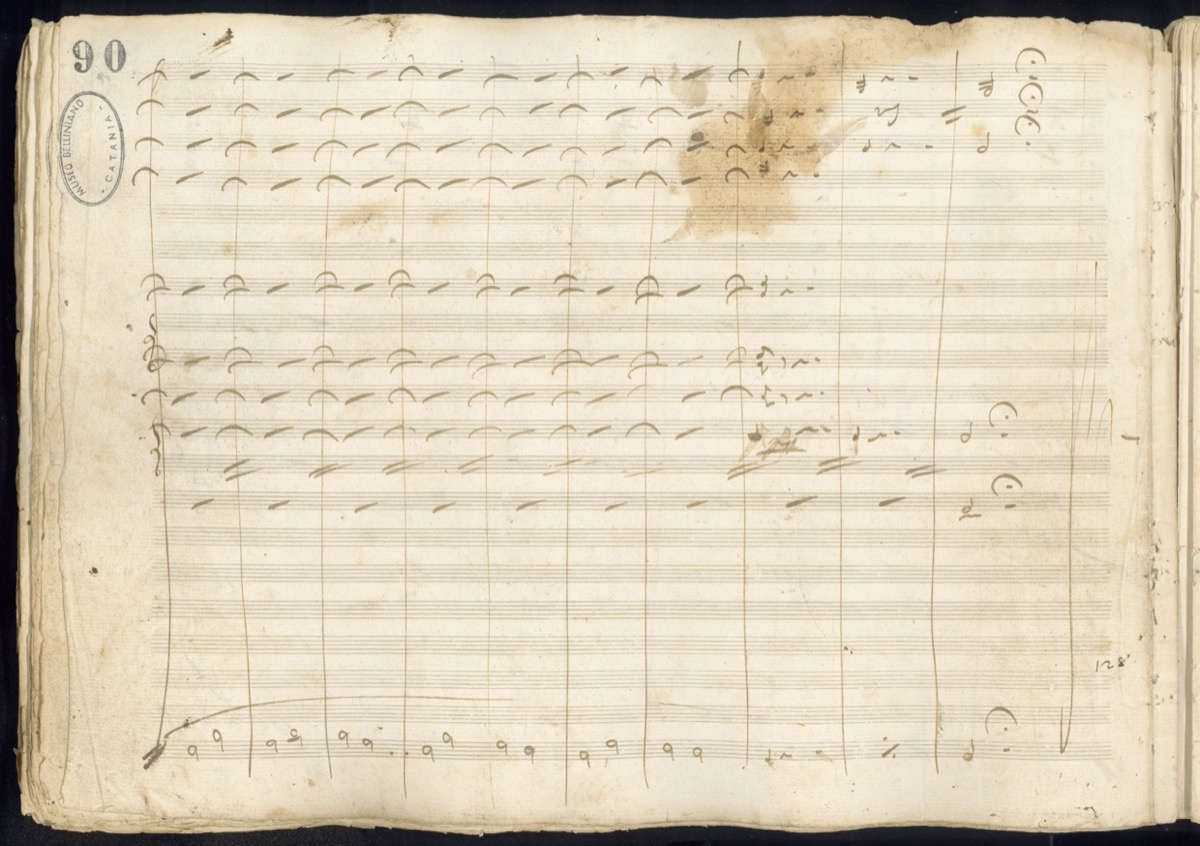 90
MUSEO BELLINIANO
- CATANIA -
128